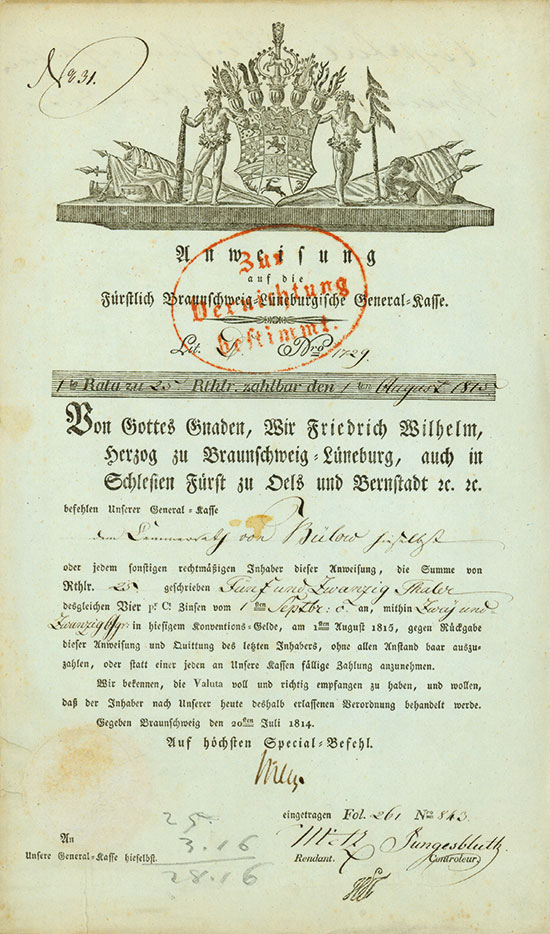 No 31.
Anweisung
auf die
Fürstlich Braunschweig-Lüneburgische General-Kasse.
Zur
Vernichtung
bestimmt.
Lit. Nro 1729.
1te Rata zu 25 Rthlr. zahlbar den 1ten August 1815
Von Gottes Gnaden, Wir Friedrich Wilhelm,
Herzog zu Braunschweig-Lüneburg, auch in
Schlesien Fürst zu Oels und Bernstadt ꝛc. ꝛc.
befehlen Unserer General-Kasse
dem Cammerrath von Bülow hieselbst
oder jedem sonstigen rechtmäßigen Inhaber dieser Anweisung, die Summe von
Rthlr. 25 geschrieben Fünf und Zwanzig Thaler
desgleichen Vier pr Ct Zinsen vom 1ten Septbr: c an, mithin Zwey und
Zwanzig ggr in hiesigem Konventions-Gelde, am 1ten August 1815, gegen Rückgabe
dieser Anweisung und Quittung des letzten Inhabers, ohne allen Anstand baar auszu-
zahlen, oder statt einer jeden an Unsere Kassen fällige Zahlung anzunehmen.
Wir bekennen, die Valuta voll und richtig empfangen zu haben, und wollen,
daß der Inhaber nach Unserer heute deshalb erlassenen Verordnung behandelt werde.
Gegeben Braunschweig den 20sten Juli 1814.
Auf höchsten Special-Befehl.
eingetragen Fol. 261 Nro 843.
25.
3.16
28.16
An
Unsere General-Kasse hieselbst.
Jungesbluth
Rendant.
Controleur.